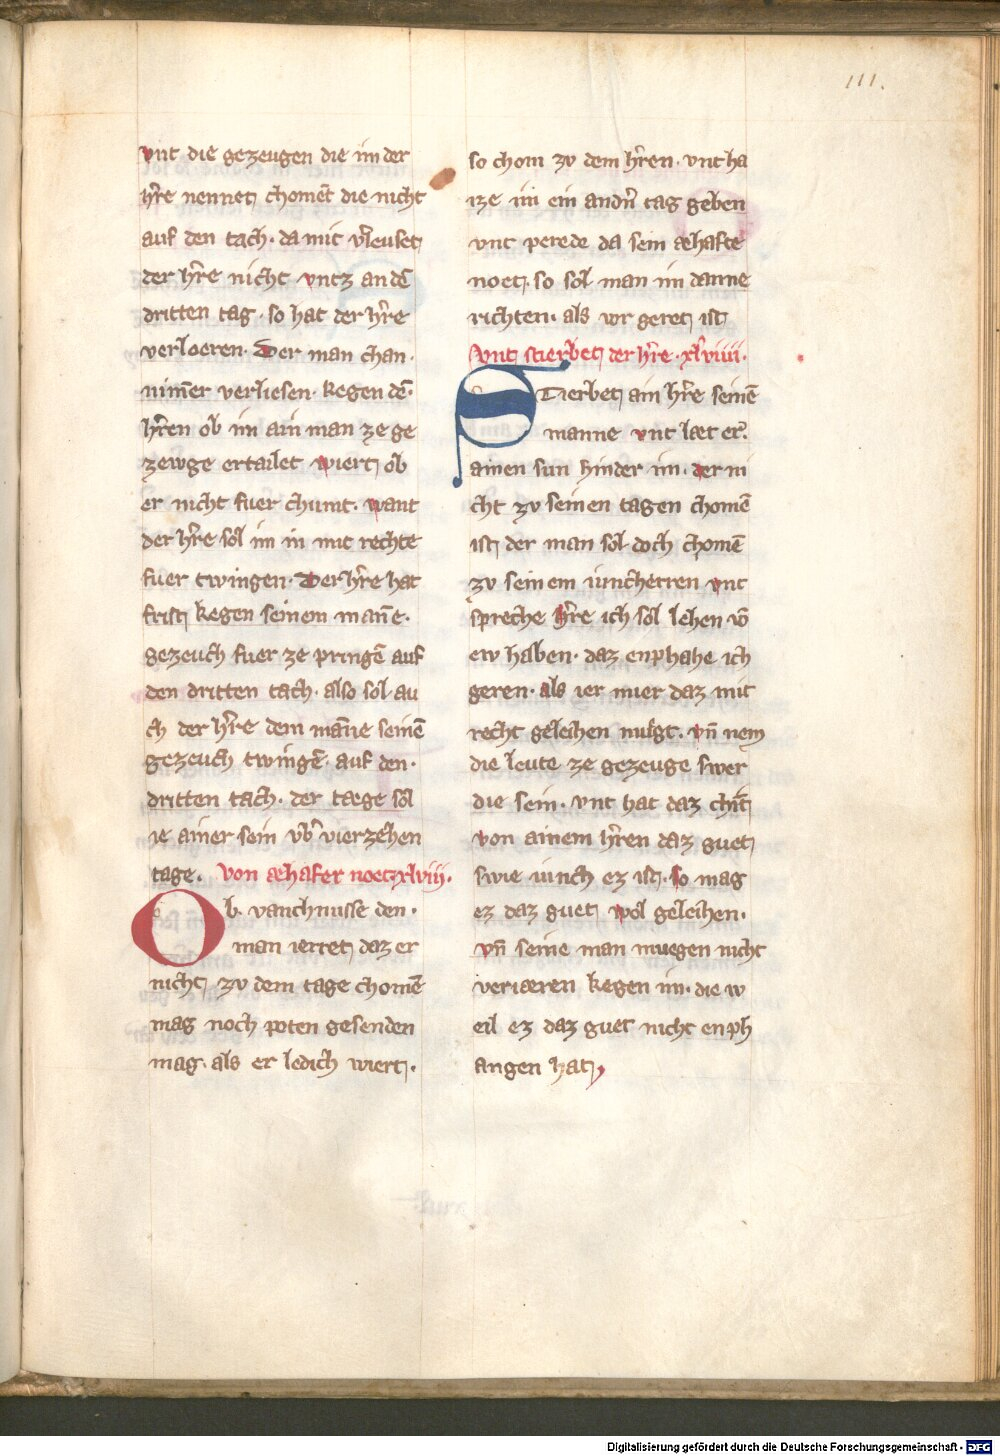 111.
vnt die gezeugen die im der
h̄re nennet choment̄ die nicht
auf den tach. da mit v̄leuset
der h̄re nicht vntz an dē
dritten tag. so hat der h̄re
verloeren. Der man chan.
nim̄er verliesen. kegen dē.
h̄ren ob im ain man ze ge
zewge ertailet wiert ob
er nicht fuer chumt. want
der h̄re sol im in mit rechte
fuer twingen. Der h̄re hat
frist kegen seinem man̄e.
gezeuch fuer ze pringē auf
den dritten tach. also sol au
ch der h̄re dem man̄e seinē
gezeuch twingē. auf den.
dritten tach. der tæge sol
ie ainer sein vb̄ vierzehen
tage. Von æhafer noet xlviii.
Ob. vanchnusse den.
man ierret daz er
nicht zv dem tage chomē
mag noch poten gesenden
mag. als er ledich wiert.
so chom zv dem h̄ren. vnt ha
ize im ein andn̄ tag geben
vnt perede da sein æhafte
noet. so sol man im danne
richten. als vor geret ist
Vnt stierbet der h̄re. xlviiii.
STierbet ain h̄re seinē
manne vnt læt er.
ainen sun hinder im. der ni
cht zv seinen tagen chomē
ist der man sol doch chomē
zv seinem iuncherren vnt
spreche h̄re ich sol lehen vō
ew haben. daz enphahe ich
geren. als ier mier daz mit
recht geleihen mugt. vn̄ nem
die leute ze gezeuge swer
die sein. vnt hat daz chīt
von ainem h̄ren daz guet
swie iunch ez ist. so mag
ez daz guet wol geleihen.
vn̄ seine man muegen nicht
veriæren kegen im. die w
eil ez daz guet nicht enph
angen hat,
Digitalisierung gefördert durch die Deutsche Forschungsgemeinschaft - DFG